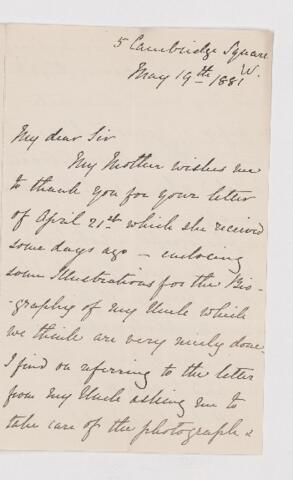 5 Cambridge Square
W.
May 19th 1881
My dear Sir
My Mother wishes me
to thank you for your letter
of April 21st which she received
some days ago – enclosing
some Illustrations for the Bio-
-graphy of my Uncle which
we think are very nicely done.
I find on referring to the letter
from my Uncle asking me to
take care of the photographs